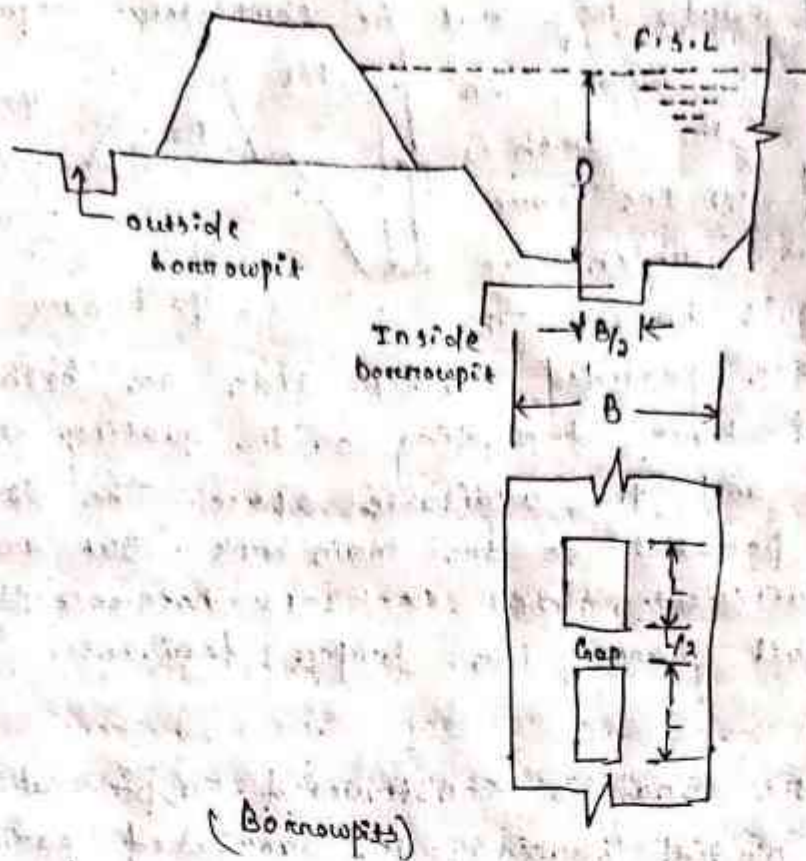 F.S.L
D
outside
borrowpit
Inside
borrowpit
B/2
B
L
Gap L/2
L
(Borrowpits)